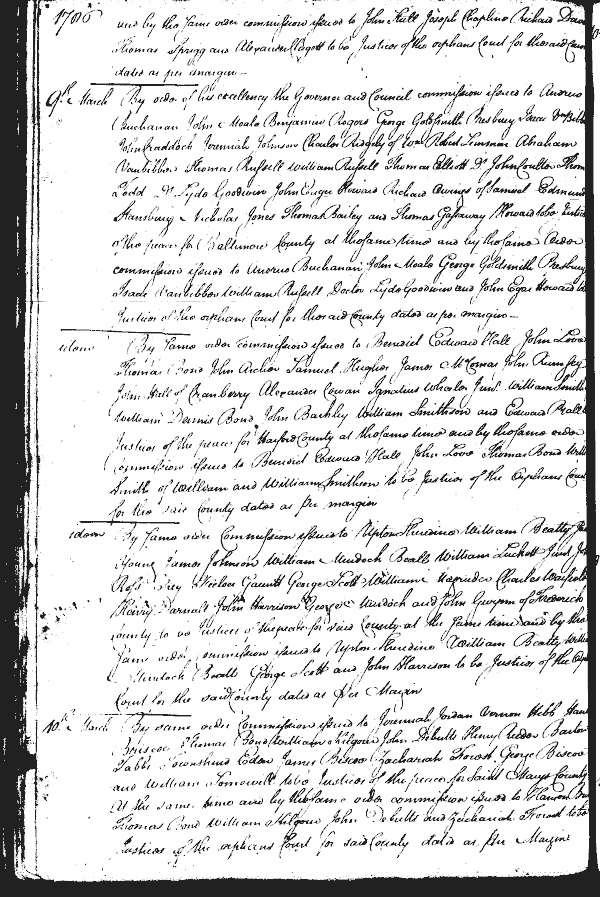 1786
and by the same order commission issued to John Stull Joseph Chapline Richard
Thomas Sprigg and Alexander Clagett to be Justices of the orphans Court for the said
dated as per margin
9th March By order of his excellency the Governor and Council commission issued to Andrew
Buchanan John Moale Benjamin Rogers George Goldsmith Presbury Isaac
John Craddock Jeremiah Johnson Charles Ridgely of Wm Robert Lemmon Abraham
Vanbibber Thomas Russell William Russell Thomas Elliott Dr John Coulter
Todd Dr Lyde Goodwin John Eager Howard Richard Owings of Samuel Edmund
Stansbury Nicholas Jones Thomas Bailey and Thomas Gassaway Howard to be
of the peace for Baltimore County at the same time and by the same order
commission issued to Andrew Buchanan John Moale George Goldsmith Presbury
Isaac Vanbibber William Russell Doctor Lyde Goodwin and John Eager Howard
Justices of the orphans Court for the said County dated as per margin
idem By same order commission issued to Benedict Edward Hall John Love
Thomas Bond John Archer Samuel Hughes James McComas John Rumsey
John Hall of Cranberry Alexander Cowan Ignatius Wheeler Junr William Smith
William Dennis Bond John Barkley William Smithson and Edward
Justices of the peace for Harford County at the same time and by the same order
commission issued to Benedict Edward Hall John Love Thomas Bond
Smith of William and William Smithson to be Justices of the Orphans Court
for the said County dated as per margin
idem By same order Commission issued to Upton Sheredine William Beatty
Young James Johnson William Murdock Beall William Luckett Junr
George Scott William Charles
John Harrison George Murdock and John Gwynn of Frederick
County to be Justices of the peace for said County at the same time and by the
same order commission issued to Upton Sheredine William Beatty
Murdock Beall George Scott and John Harrison to be Justices of the
Court for the said County dated as per Margin
10th March By same order Commission issued to Jeremiah Jordan Vernon Hebb
Briscoe Thomas Bond William Kilgour John Henry
Tabbs Townshend Eden James Biscoe Zachariah Forrest George Biscoe
and William Somervill to be Justices of the peace for Saint Marys County
At the same time and by the same order commission issued to
Thomas Bond William Kilgour John and Zachariah Forrest to be
Justices of the orphans Court for said County dated as per Margin